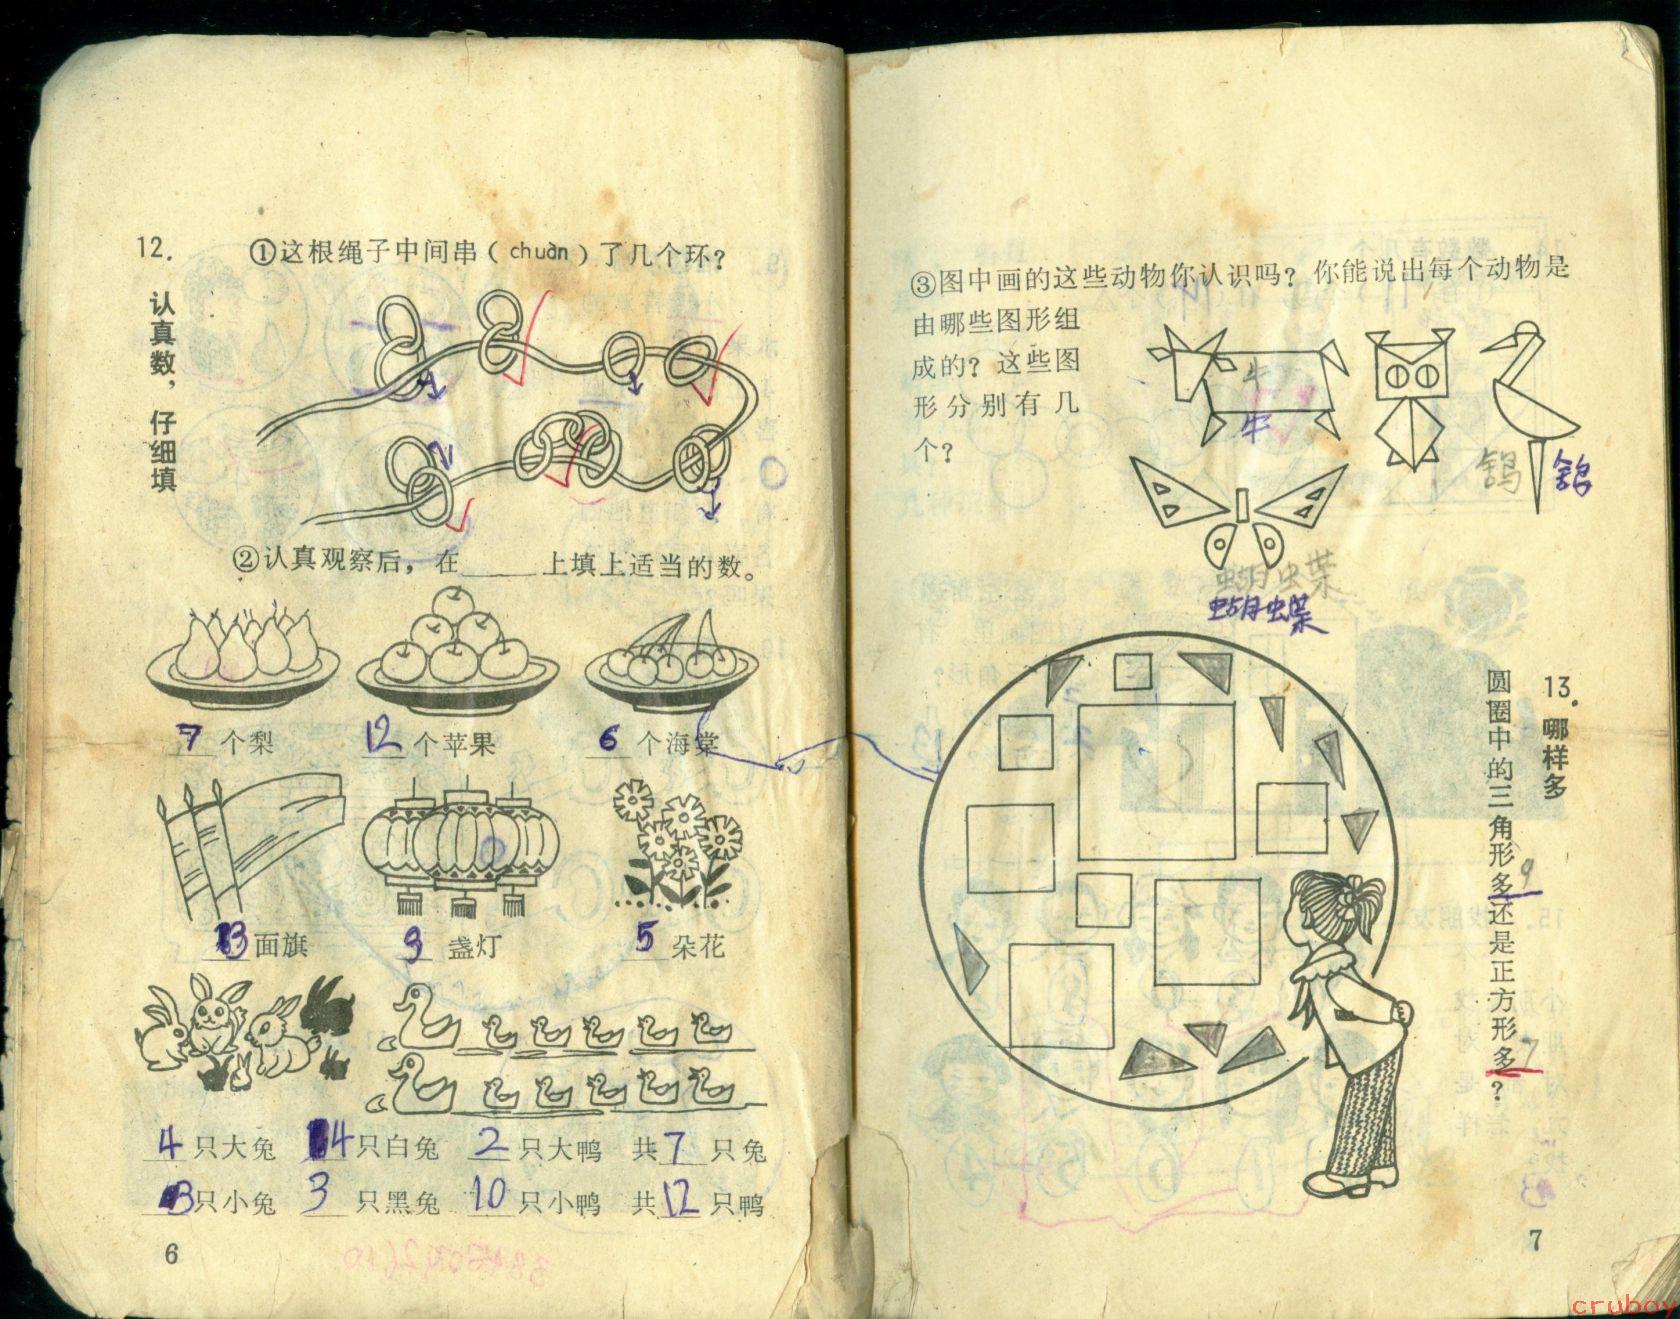 12.
认真数，仔细填
①这根绳子中间串（chuàn）了几个环？
②认真观察后，在____上填上适当的数。
7 个梨 12 个苹果 6 个海棠
3 面旗 3 盏灯 5 朵花
4 只大兔 4 只白兔 2 只大鸭 共 7 只兔
3 只小兔 3 只黑兔 10 只小鸭 共 12 只鸭
6
③图中画的这些动物你认识吗？你能说出每个动物是
由哪些图形组
成的？这些图
形分别有几
个？
牛
牛
蝴蝶
蝴蝶
13.
哪样多
圆圈中的三角形多 9 还是正方形多 7 ？
7
cruboy